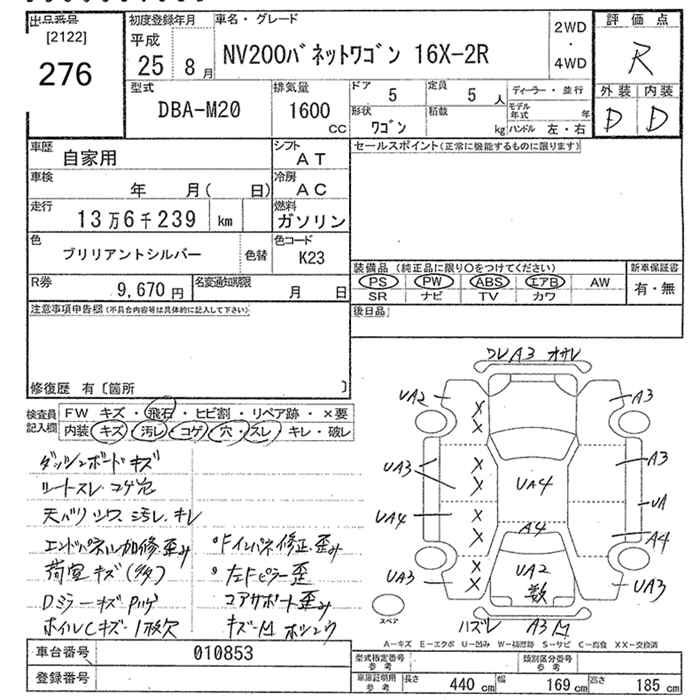 出品番号
[2122]
276
初度登録年月
平成
25 8月
車名・グレード
NV200バネットワゴン 16X-2R
2WD
・
4WD
評価点
R
外装 内装
D D
型式
DBA-M20
排気量
1600
CC
ドア
5
定員
5 人
ディーラー・並行
モデル年式 年
形状
ワゴン
積載
kg
ハンドル 左・右
車歴
自家用
シフト
AT
セールスポイント(正常に機能するものに限ります)
車検
年 月( 日)
冷房
AC
走行
13万6千239 km
燃料
ガソリン
色
ブリリアントシルバー
色替
色コード
K23
装備品 (純正品に限り○をつけてください)
新車保証書
PS PW ABS エアB AW
有・無
SR ナビ TV カワ
R券
9,670円
名変通知期限
月 日
後日品
注意事項申告欄(不具合内容等は具体的に記入して下さい)
修復歴 有〔箇所 〕
検査員
記入欄
FW キズ・飛石・ヒビ割・リペア跡・×要
内装 キズ・汚レ・コゲ・穴・スレ・キレ・破レ
ダッシュボードキズ
シートスレ.コゲ穴
天バリ シワ.汚レ.キレ
エンドパネル加修.歪み
荷室キズ(多)
Dミラーキズ
ホイルCキズ-1枚欠
°Fインパネ修正.歪み
°左Fピラー歪
コアサポート歪み
UA2
A3
UA3
A3
UA4
UA4
UA
A4
A4
UA3
UA2
数
UA3
X
X
X
X
X
X
X
X
ハズレ
スペア
A-キズ E-エクボ U-凹み W-補修跡 S-サビ C-腐食 XX-交換済
車台番号
010853
登録番号
型式指定番号
参考
類別区分番号
参考
車庫証明用
参考
長さ 440 cm
幅 169 cm
高さ 185 cm